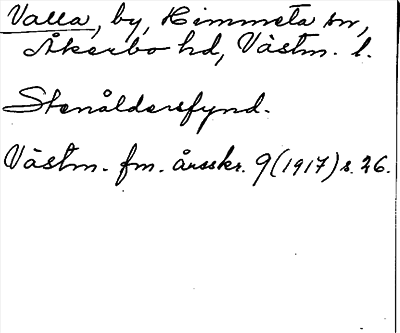 Valla, by, Himmeta sn,
Åkerbo hd, Västm. l.
Stenåldersfynd.
Västm. fm. årsskr. 9 (1917) s. 26.